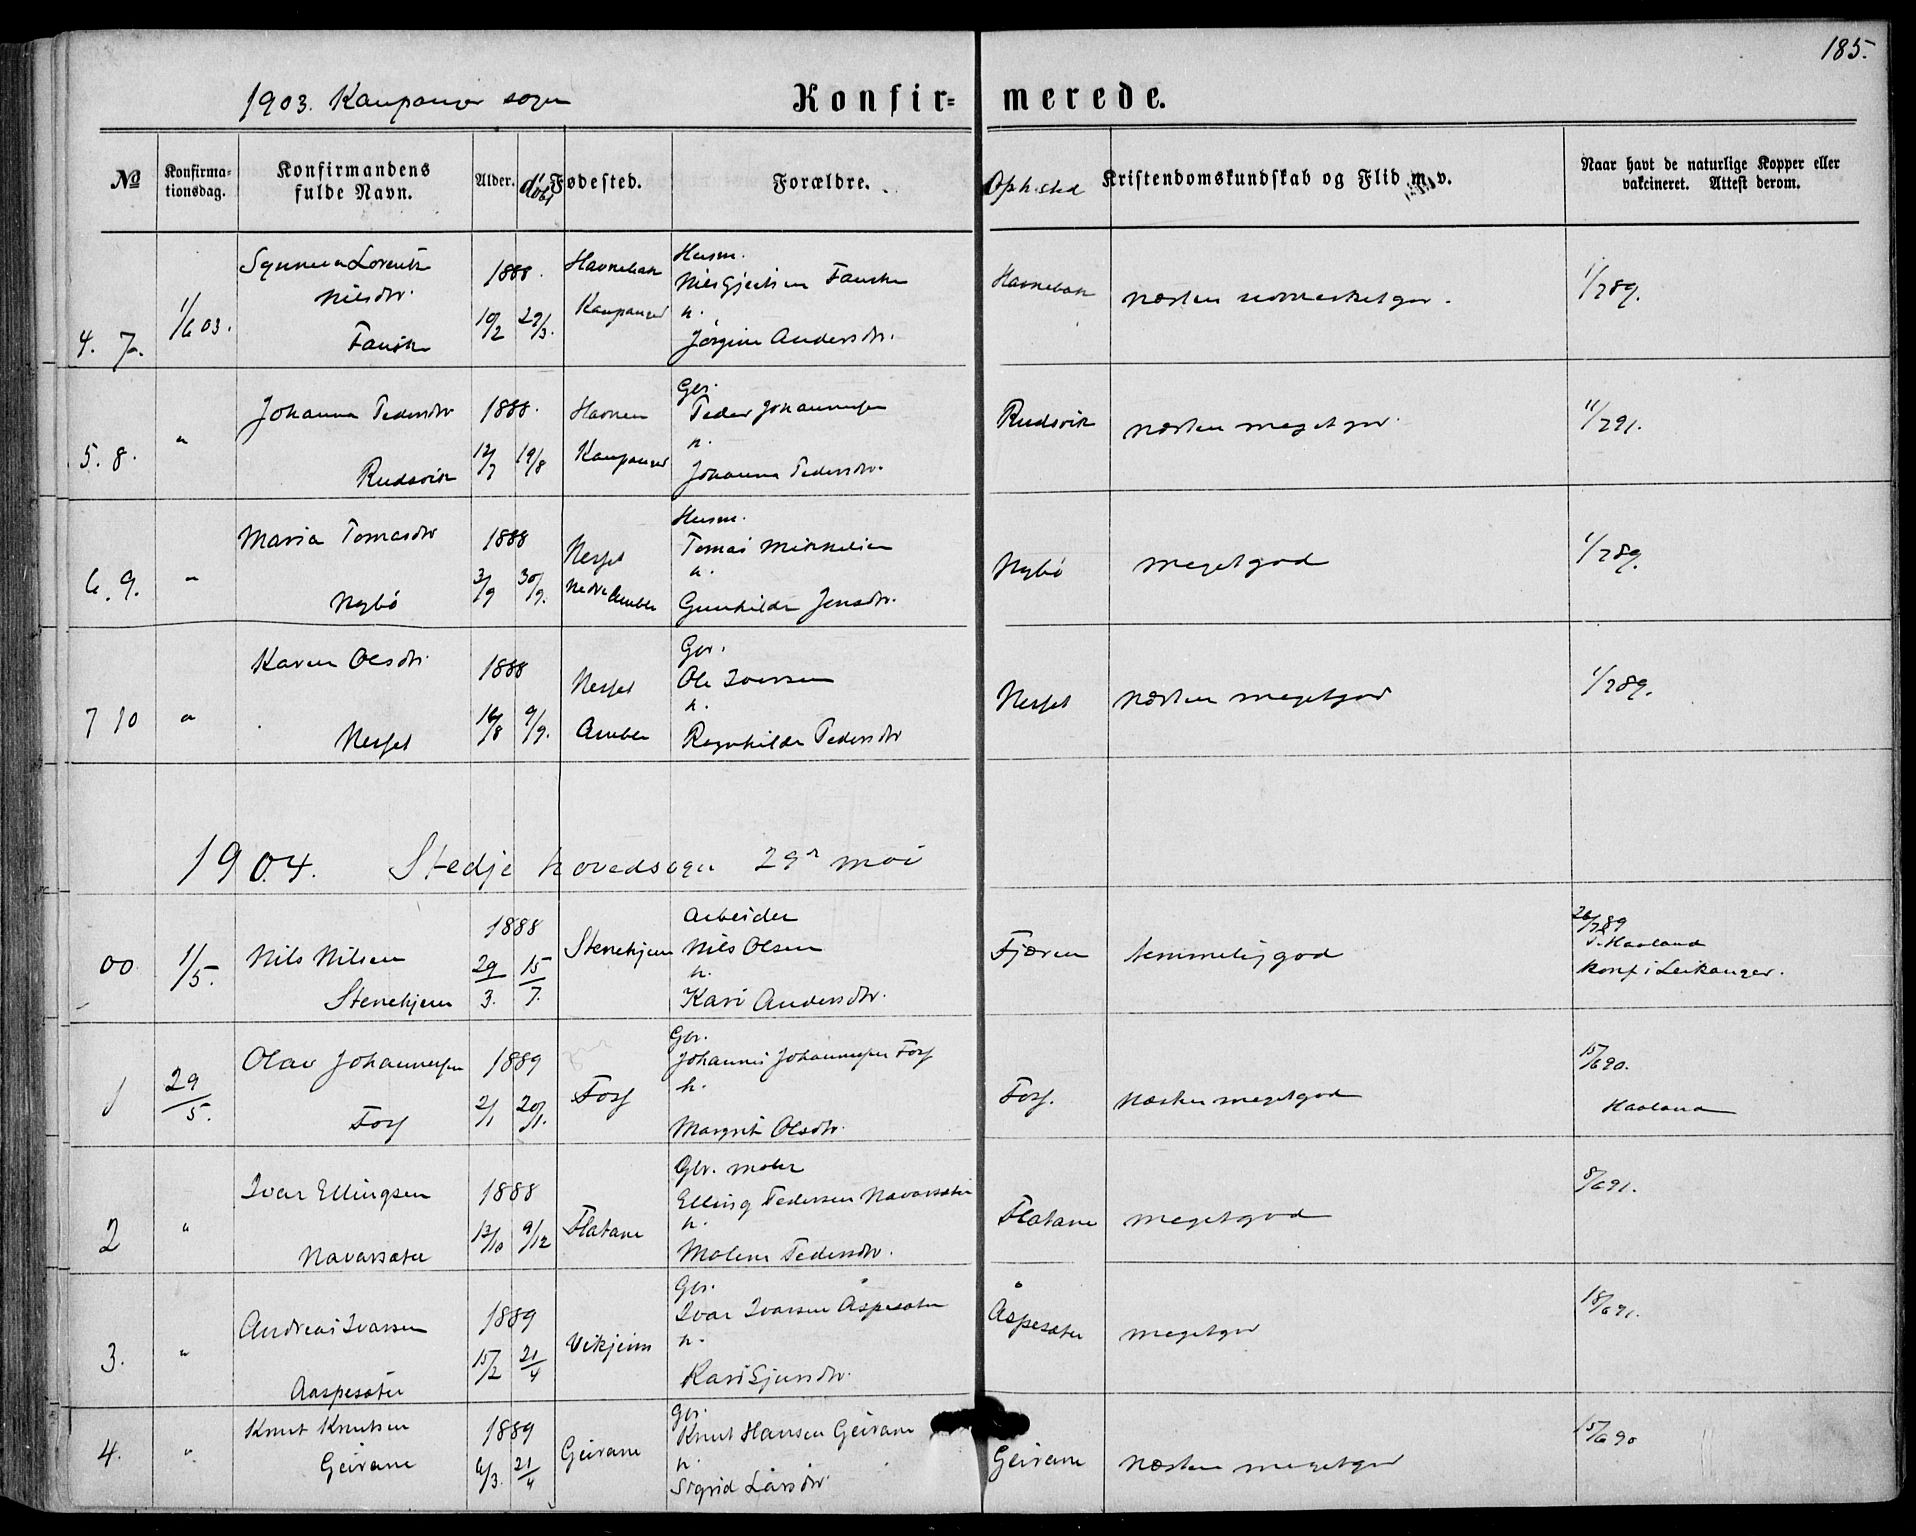 185.
1903. Kaupanger sogn
Konfir= merede.
No Konfirma=tionsdag. Konfirmandens fulde Navn. Alder. døbt Fødested. Forældre. Ophsted Kristendomskundskab og Flid m. v. Naar havt de naturlige Kopper eller vakcineret. Attest derom.
4. 7. 1/6 03.
Synneva Lorentse
Nilsdtr.
Fauske
1888.
10/2 29/3.
Kaupanger
Husm.
Nils Gjertsen Fauske
h.
Jørgine Andersdtr.
1/7 89.
5. 8. "
Johanna Pedersdtr
Rudsvik
1888.
12/7 19/8
Havnen
Kaupanger
Gbr.
Peder Johannesen
h.
Johanna Pedersdtr.
Rudsvik
næsten meget god
11/7 91.
6. 9. "
Maria Tomasdtr
Nybø
1888
3/9 30/9.
Nesset
Nedre Amble
Husm.
Tomas Mikkelsen
h.
Gunhilda Jensdtr.
Nybø
meget god
1/7 89.
7 10 "
Karen Olsdtr.
Nesset
1888
16/8 9/9.
Nesset
Amble
Gbr.
Ole Iversen
h.
Ragnhilda Pedersdtr
Nesset
næsten meget god
1/7 89.
1904. Stedje hovedsogn 29n mai
00 1/5.
Nils Nilsen
Stenehjem
1888
29/3. 15/7.
Stenehjem
Arbeider
Nils Olsen
h.
Kari Andersdtr.
Fjæren
temmelig god
26/7 89
Haaland
konf i Leikanger.
1 29/5.
Olav Johannessen
Foss
1889
2/1 20/1.
Foss
Gbr.
Johannes Johannessen Foss
h.
Margrit Olsdtr.
Foss.
næsten meget god
15/6 90.
Haaland
2 "
Ivar Ellingsen
Navarsæter
1888
13/10 9/12
Flatane
Gbr. maler
Elling Pedersen Navarsæter
h.
Malene Pedersdtr.
Flatane
meget god
8/6 91.
3. "
Andreas Ivarsen
Aaspesæter
1889
15/2 21/4
Vikjeim
Gbr.
Ivar Ivarsen Åspesæter
h.
Kari Sjursdtr.
Åspesæter
meget god
18/6 91.
4. "
Knut Knutsen
Geirane
1889
6/3. 21/4
Geirane
Gbr.
Knut Hansen Geirane
h.
Sigrid Larsdtr
Geirane
næsten meget god
15/6 90